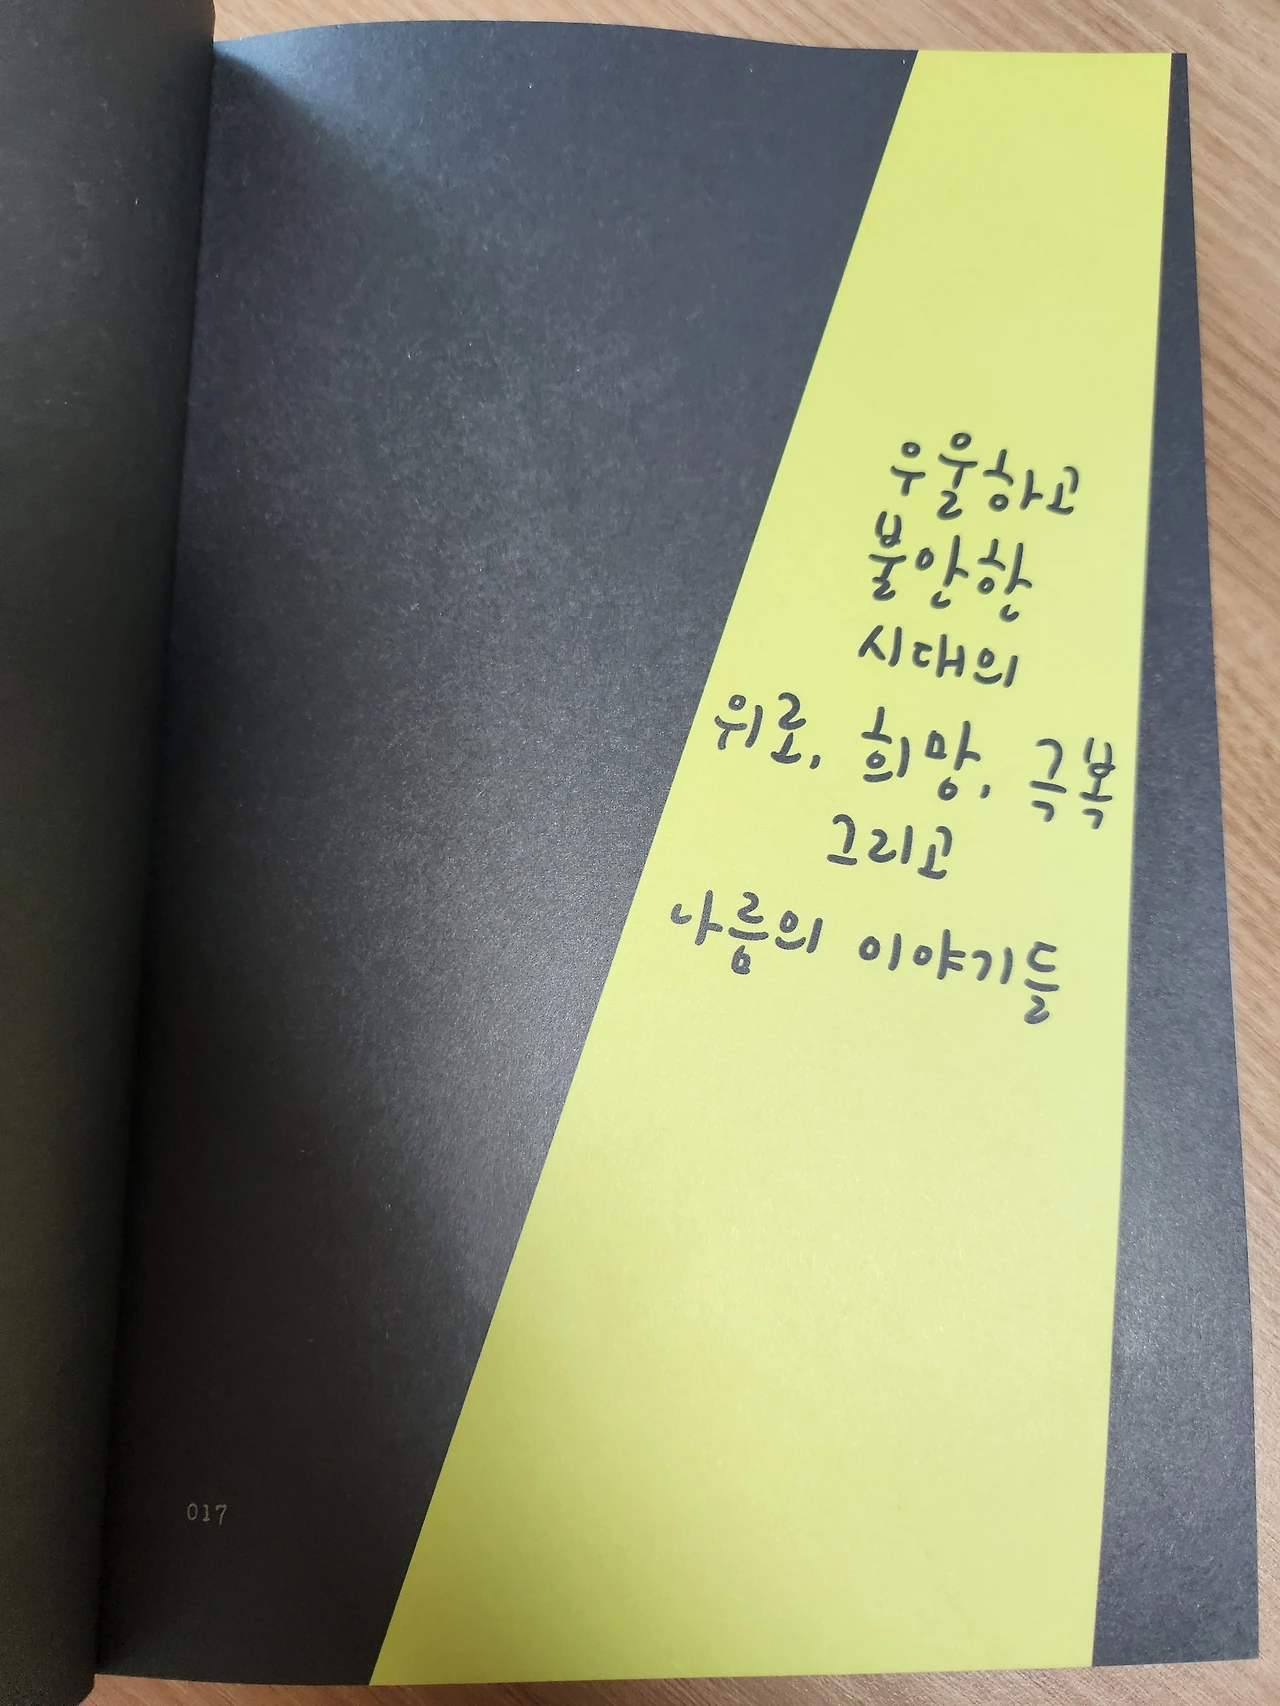 우울하고
불안한
시대의
위로, 희망, 극복
그리고
나름의 이야기들
017